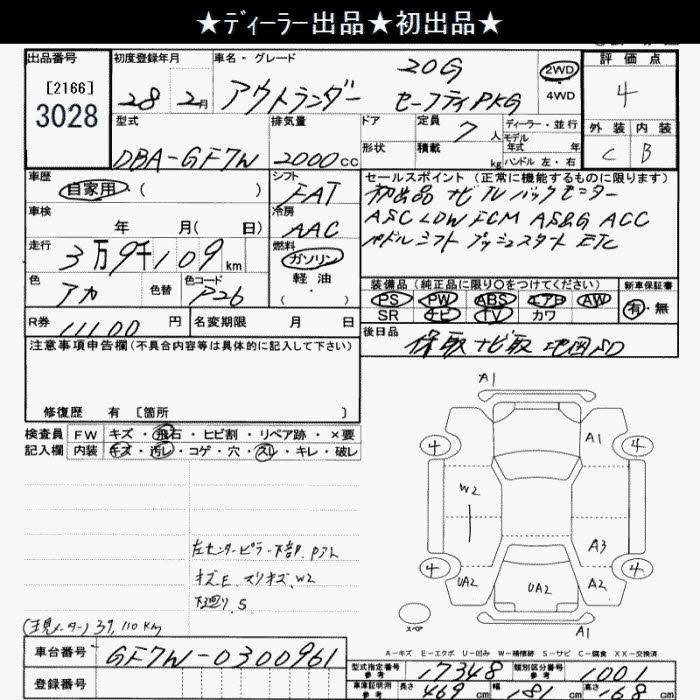 ★ディーラー出品★初出品★
出品番号
[2166]
3028
初度登録年月
28 2月
車名・グレード
アウトランダー
20G
セーフティPKG
2WD
4WD
評価点
4
外装 内装
C B
型式
DBA-GF7W
排気量
2000cc
ドア
形状
定員 7人
積載 kg
ディーラー・並行
モデル年式 年
ハンドル 左・右
車歴
自家用・( )
シフト
FAT
車検
年 月( 日)
冷房
AAC
走行
3万9千109km
燃料
ガソリン
軽油
( ・ )
色
アカ
色替
色コード
P26
R券 11100円
名変期限 月 日
セールスポイント(正常に機能するものに限ります)
初出品 ナビ TV バックモニター
ASC LDW FCM AS&G ACC
パドルシフト プッシュスタート ETC
装備品(純正品に限り○をつけてください)
PS PW ABS エアB AW
SR ナビ TV カワ
新車保証書
有・無
後日品
保取 ナビ取 地図SD
注意事項申告欄(不具合内容等は具体的に記入して下さい)
修復歴 有 [箇所 ]
検査員記入欄
FW キズ・飛石・ヒビ割・リペア跡・×要
内装 キズ・汚レ・コゲ・穴・スレ・キレ・破レ
左センターピラー下部
キズ、E スリキズ、W2
下廻り、S
(現メーター) 39,110km
車台番号 GF7W-0300961
登録番号
A1
4
A1
4
W2
A3
4
UA2
UA2
A2
4
A1
スペア
A-キズ E-エクボ U-凹み W-補修跡 S-サビ C-腐食 XX-交換済
型式指定番号 参考 17348
類別区分番号 参考 1001
車庫証明用 参考 長さ 469cm 幅 181cm 高さ 168cm